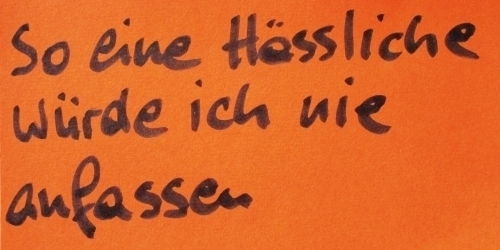 So eine Hässliche
würde ich nie
anfassen